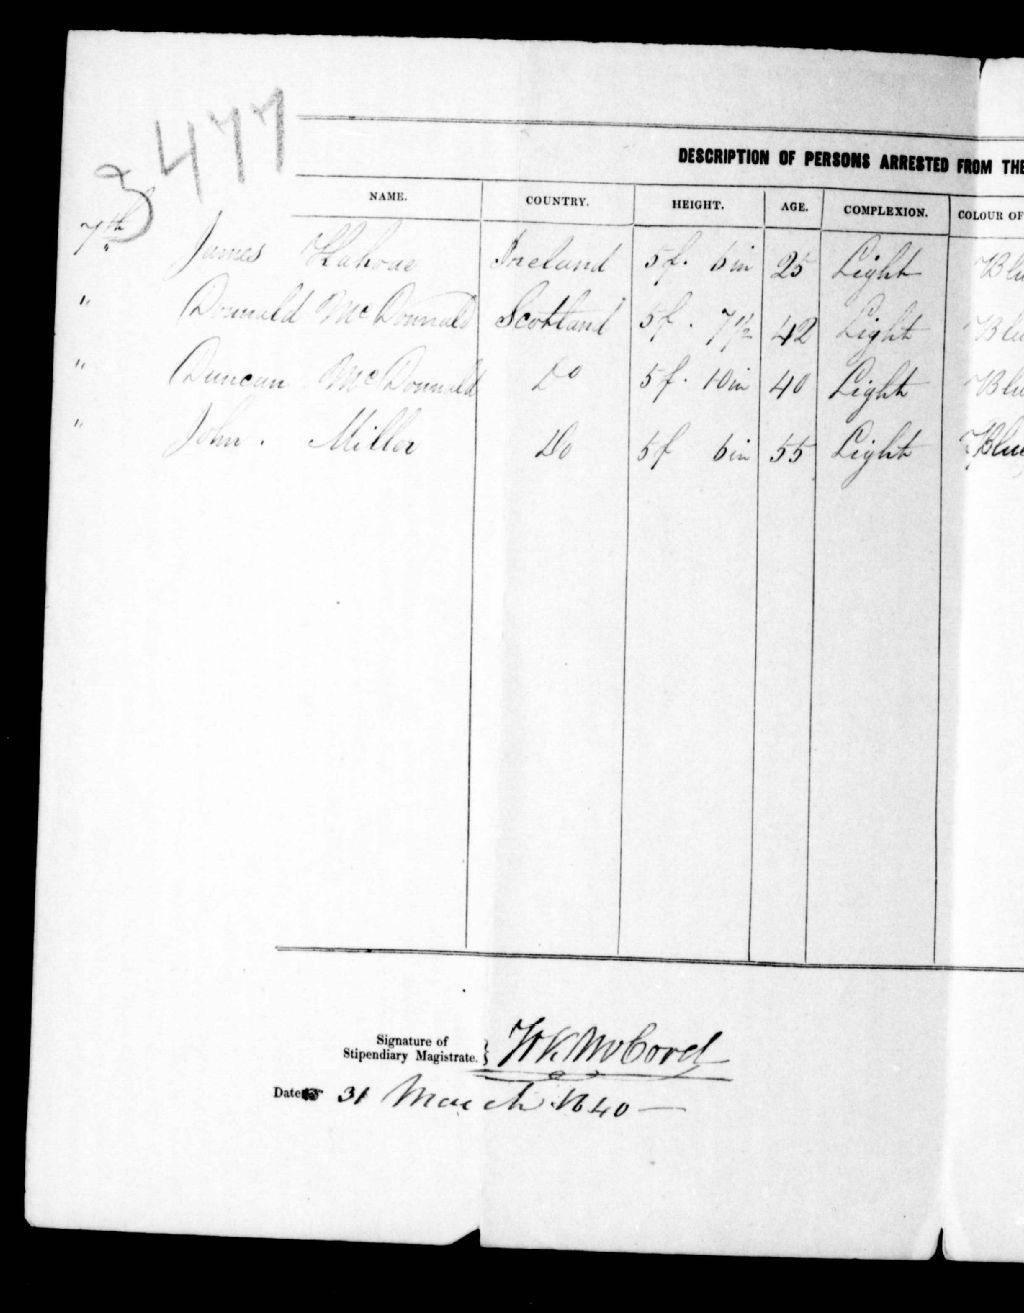 3477
DESCRIPTION OF PERSONS ARRESTED FROM THE
NAME. COUNTRY. HEIGHT. AGE. COMPLEXION. COLOUR OF
7th James Ireland 5f. 6in 25 Light Blu
" Donnald McDonnald Scotland 5f. 7½ 42 Light Blu
" Duncan McDonnald Do 5f. 10in 40 Light Blu
" John. Miller Do 5f 6in 55 Light Blue
Signature of
Stipendiary Magistrate. } W K McCord
Date 31 March 1840 —